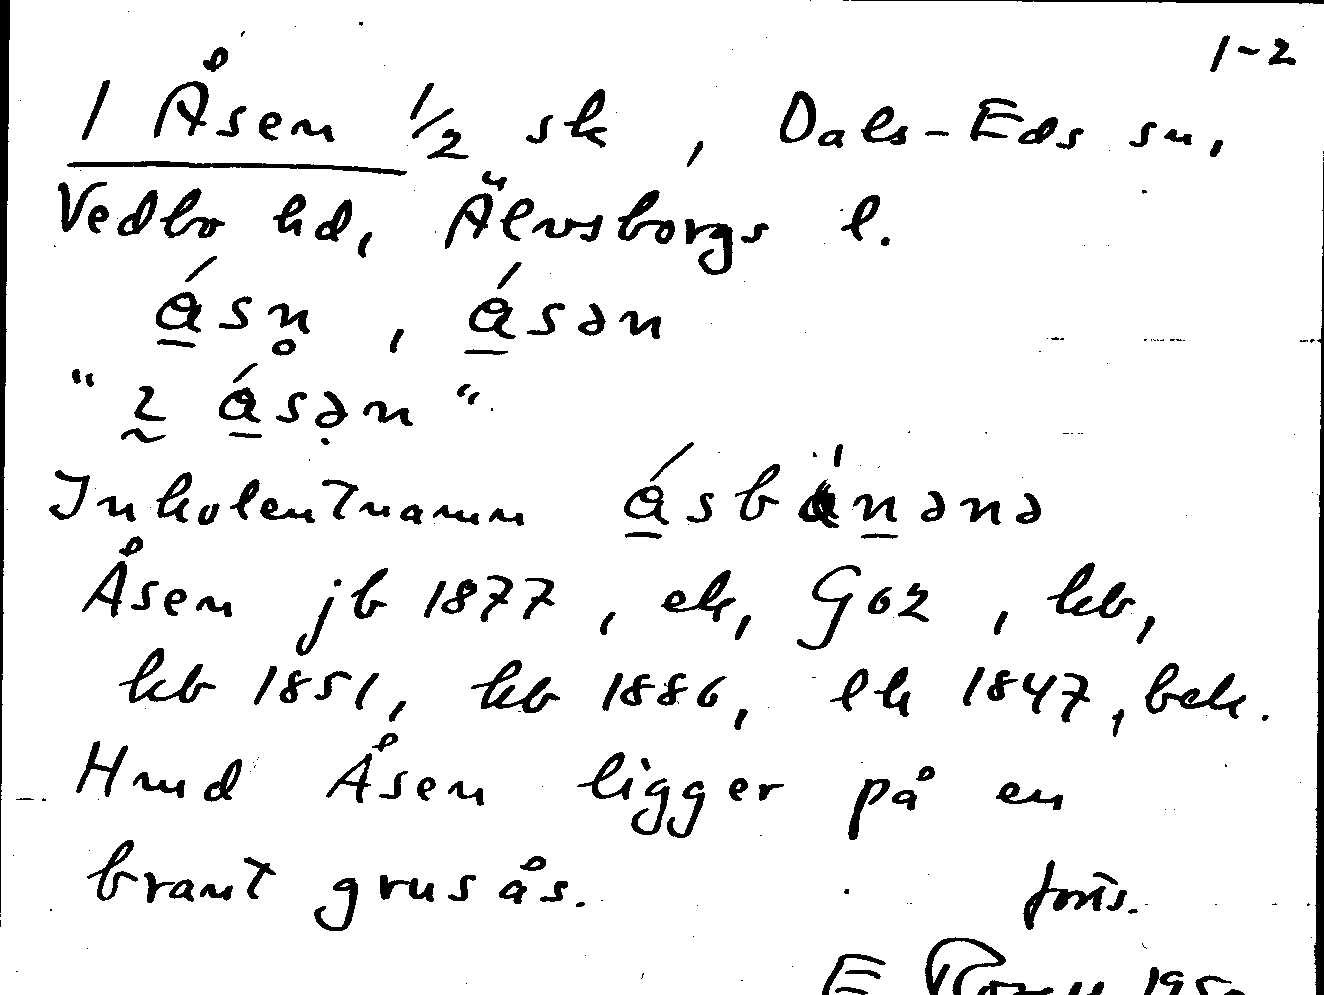 1-2
1 Åsen 1/2 sk, Dals-Eds sn,
Vedbo hd, Älvsborgs l.
ásn̥, ásən
" ásə̣n "
Inkolentnamn
Åsen jb 1877, ek, G02, kb,
kb 1851, kb 1886, lk 1847, bek.
Hmd Åsen ligger på en
brant grusås. forts.
E 195